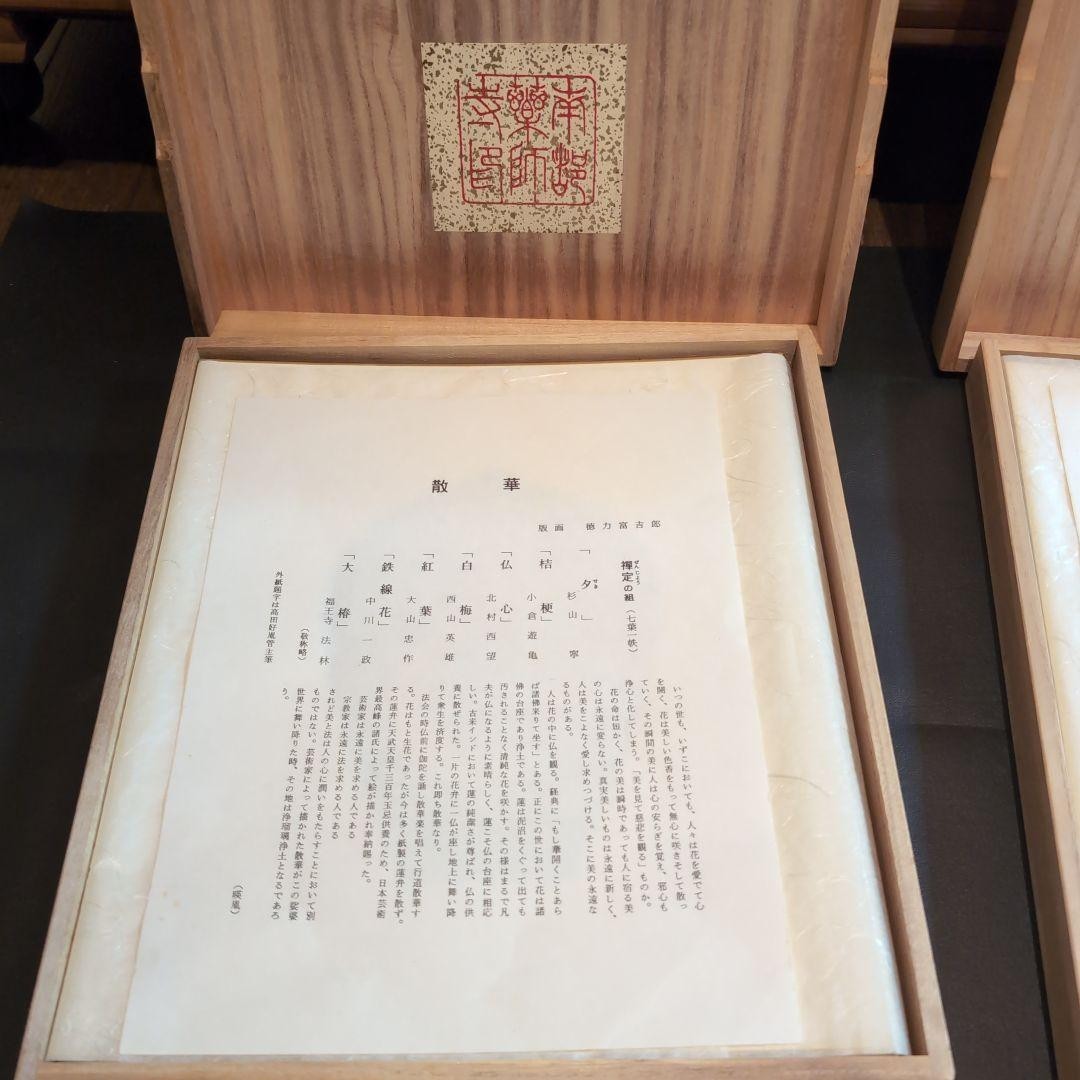 南都
藥師
寺印
散　華
版画　徳力富吉郎
禪定の組（七葉一帙）
ぜんじょう
「夕」　杉山　寧
せき
「桔梗」　小倉遊亀
「仏心」　北村西望
「白梅」　西山英雄
「紅葉」　大山忠作
「鉄線花」　中川一政
「大椿」　福王寺法林
（敬称略）
外紙題字は高田好胤管主筆
いつの世も、いずこにおいても、人々は花を愛でて心
を開く、花は美しい色香をもって無心に咲きそして散っ
ていく、その瞬間の美に人は心の安らぎを覚え、邪心も
浄心と化してしまう。「美を見て慈悲を観る」ものか。
花の命は短かく、花の美は瞬時であっても人に宿る美
の心は永遠に変らない。真実美しいものは永遠に新しく、
人は美をこよなく愛し求めつづける。そこに美の永遠な
るものがある。
人は花の中に仏を観る。経典に「もし華開くことあら
ば諸佛来りて坐す」とある。正にこの世において花は諸
佛の台座であり浄土である。蓮は泥沼をくぐって出ても
汚されることなく清純な花を咲かす。その様はまるで凡
夫が仏になるように素晴らしく、蓮こそ仏の台座に相応
しい。古来インドにおいて蓮の純潔さが尊ばれ、仏の供
養に散ぜられた。一片の花弁に一仏が座し地上に舞い降
りて衆生を済度する。これ即ち散華なり。
法会の時仏前に伽陀を誦し散華楽を唱えて行道散華す
る。花はもと生花であったが今は多く紙製の蓮弁を散ず。
その蓮弁に天武天皇千三百年玉忌供養のため、日本芸術
界最高峰の諸氏によって絵が描かれ奉納賜った。
芸術家は永遠に美を求める人である
宗教家は永遠に法を求める人である
されど美と法は人の心に潤いをもたらすことにおいて別
ものではない。芸術家によって描かれた散華がこの娑婆
世界に舞い降りた時、その地は浄瑠璃浄土となるであろ
う。
（暎胤）